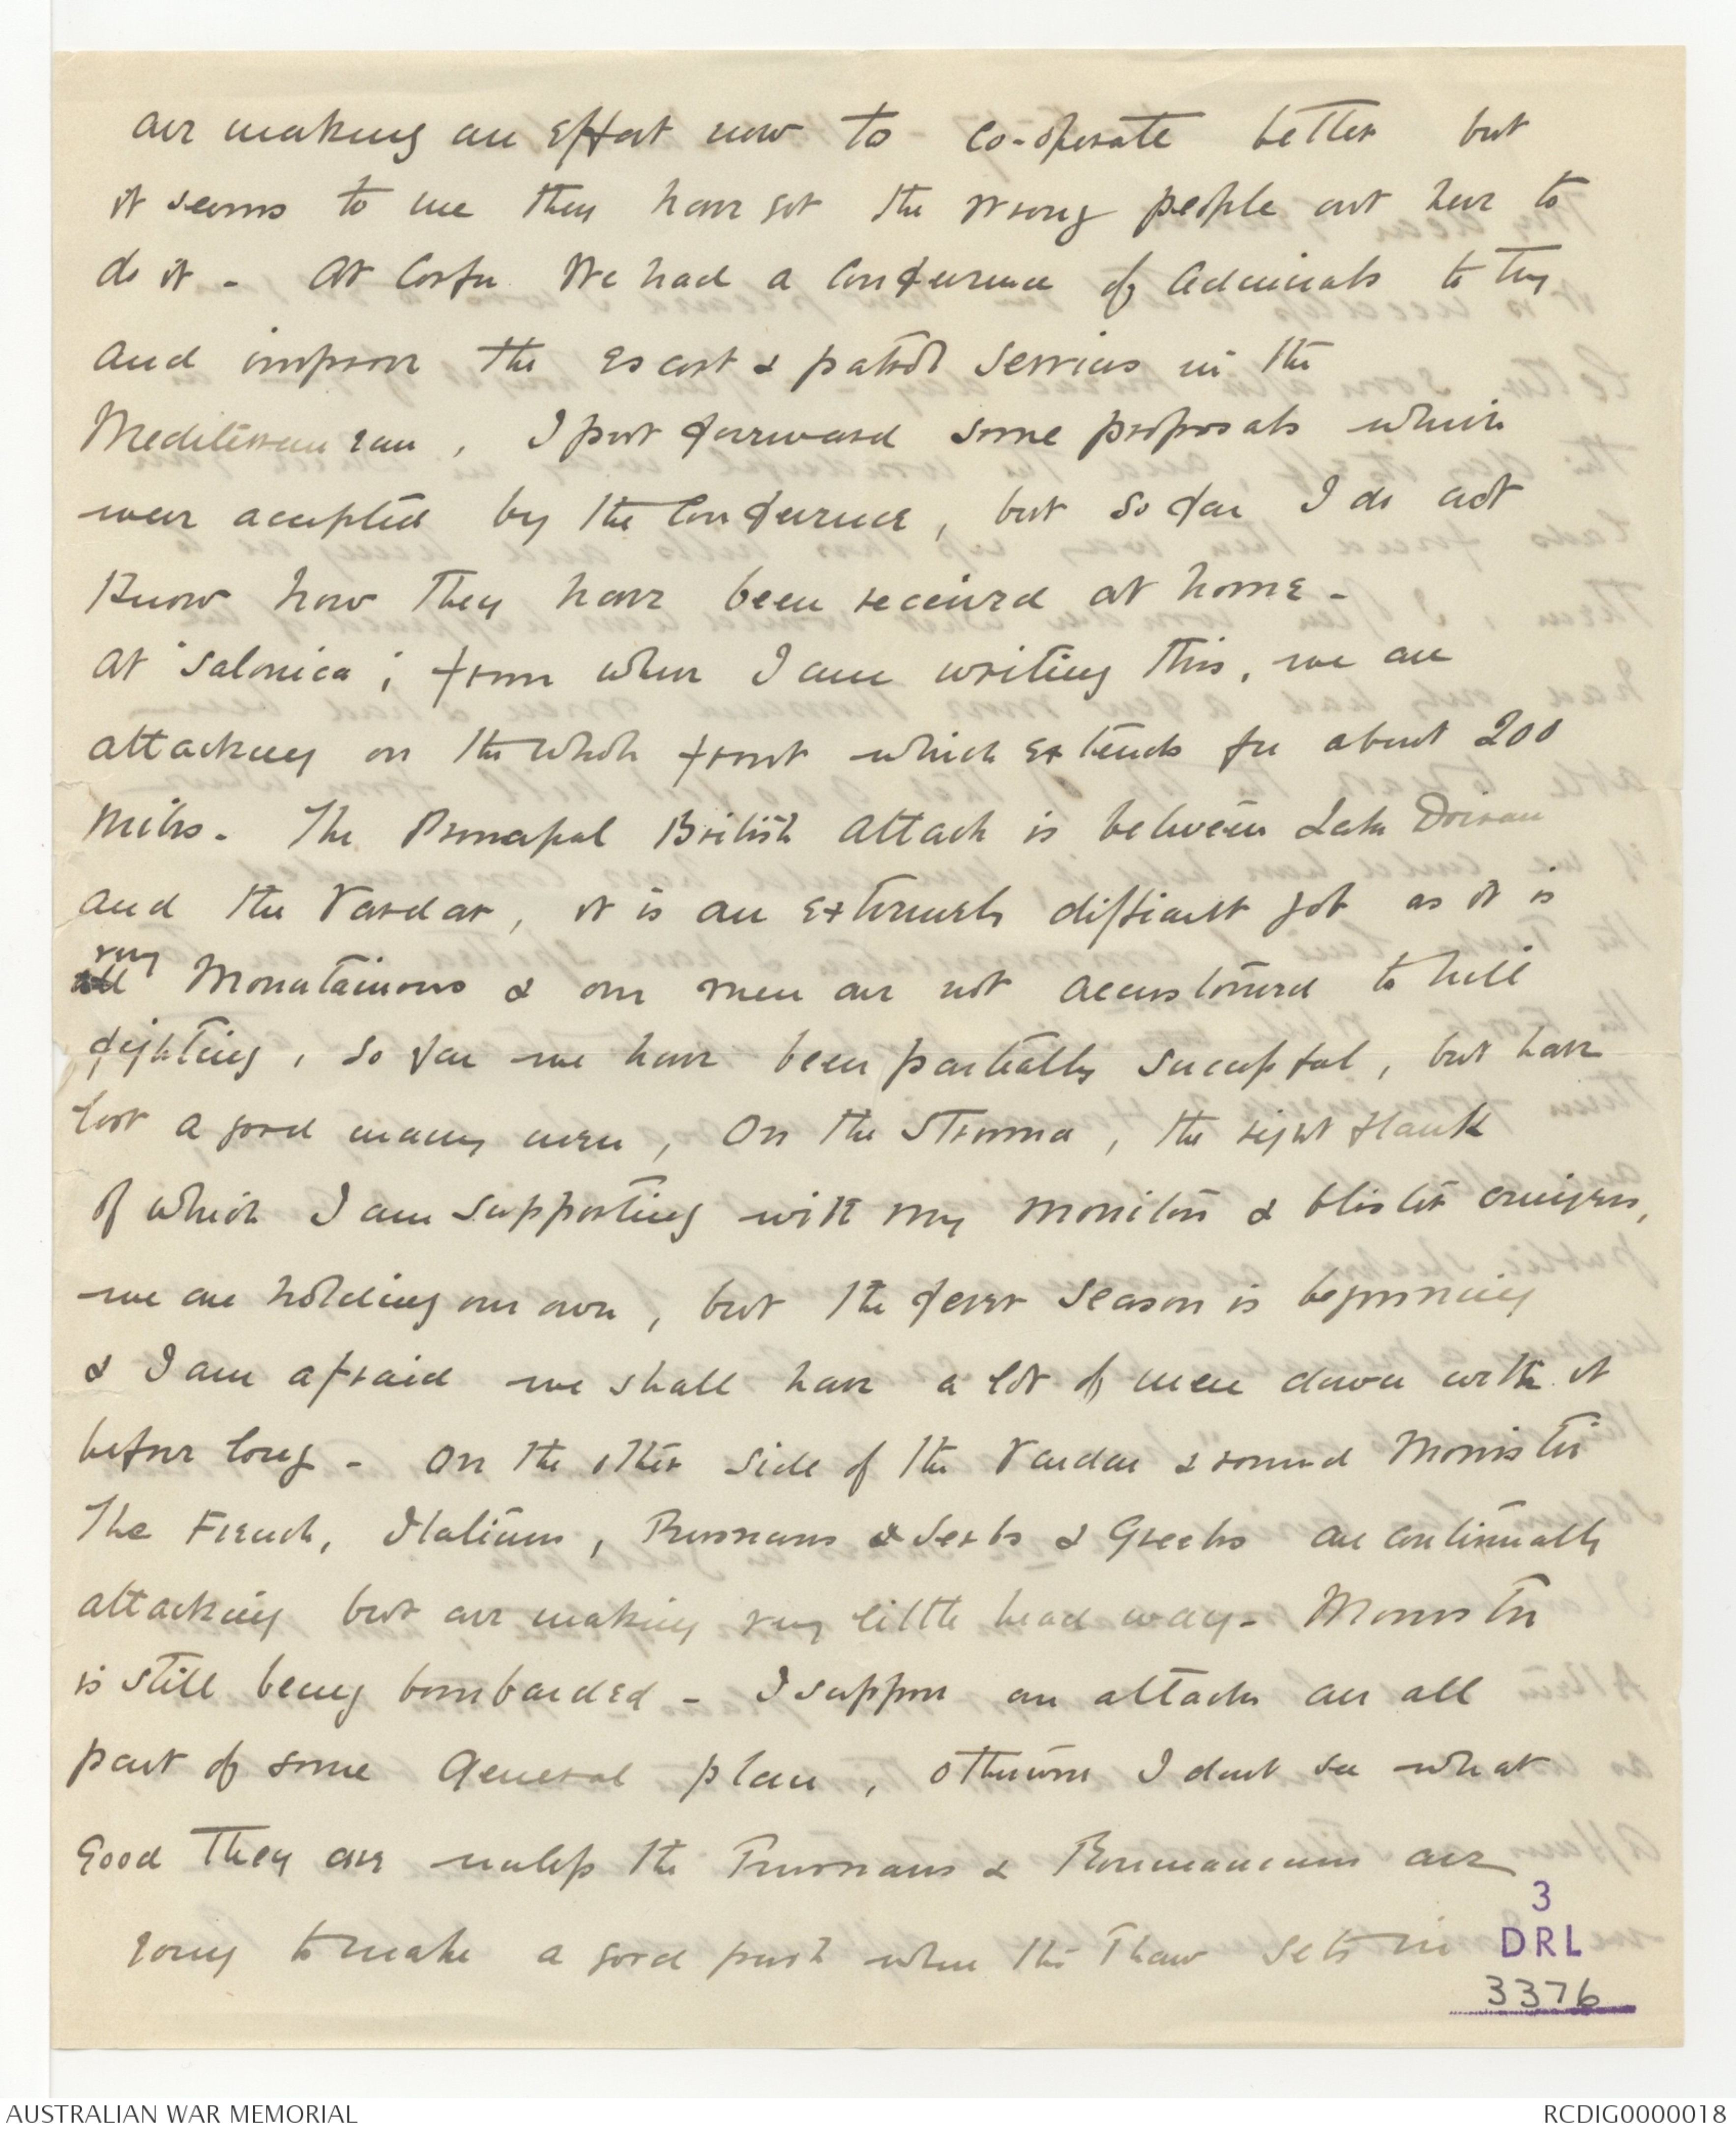 are making an effort now to co-operate better but
it seems to me they have got the wrong people out here to
do it - At Corfu we had a Conference of Admirals to try
and improve the escort & patrol services in the
Mediterranean, I put forward some proposals which
were accepted by the Conference, but so far I do not
know how they have been received at home -
At Salonica, from where I am writing this, we are
attacking on the whole front which extends for about 200
miles. The Principal British attack is between Lake Doiran
and the Vardar, it is an extremely difficult job as it is
very
all Mountainous & our men are not accustomed to hill
fighting, so far we have been partially successful, but have
lost a good many men, On the Struma, the right flank
of which I am supporting with my monitors & blister cruisers,
we are holding our own, but the fever season is beginning
& I am afraid we shall have a lot of men down with it
before long - On the other side of the Vardar & round Monistir
The French, Italians, Russians & Serbs & Greeks are continually
attacking but are making very little head way - Monistir
is still being bombarded - I suppose our attacks are all
part of some General plan, otherwise I dont see what
Good They are unless the Russians & Roumanians are
going to make a good push when the Thaw sets in
3
DRL
3376
AUSTRALIAN WAR MEMORIAL
RCDIG0000018